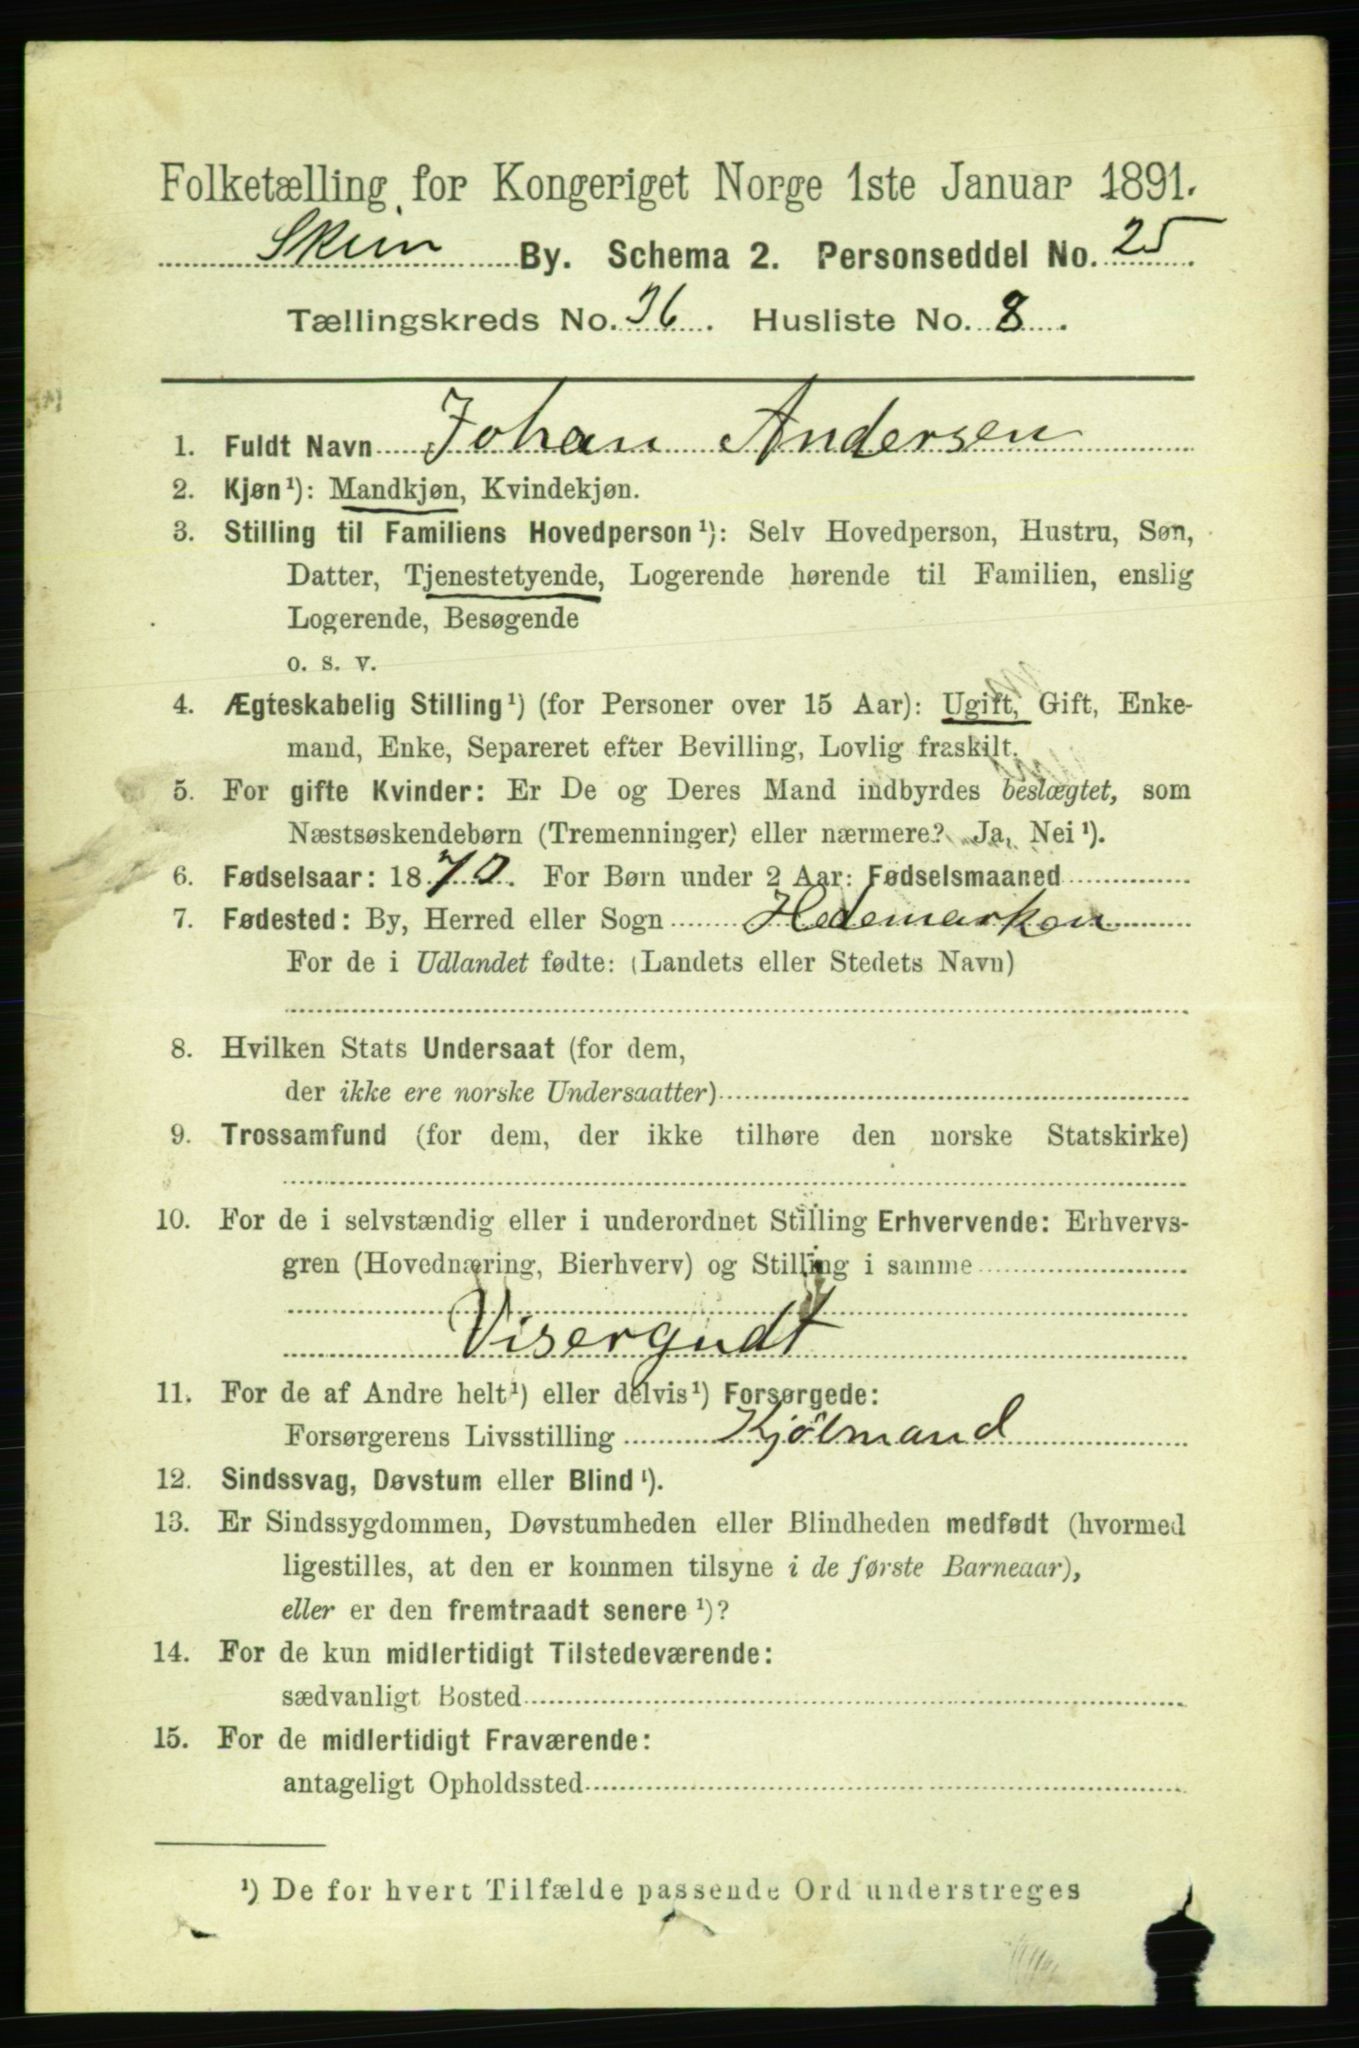 Folketælling for Kongeriget Norge 1ste Januar 1891.
Skien By. Schema 2. Personseddel No. 25
Tællingskreds No. 36. Husliste No. 8.
1. Fuldt Navn Johan Andersen
2. Kjøn¹): Mandkjøn, Kvindekjøn.
3. Stilling til Familiens Hovedperson¹): Selv Hovedperson, Hustru, Søn,
Datter, Tjenestetyende, Logerende hørende til Familien, enslig
Logerende, Besøgende
o. s. v.
4. Ægteskabelig Stilling¹) (for Personer over 15 Aar): Ugift, Gift, Enke-
mand, Enke, Separeret efter Bevilling, Lovlig fraskilt.
5. For gifte Kvinder: Er De og Deres Mand indbyrdes beslægtet, som
Næstsøskendebørn (Tremenninger) eller nærmere? Ja, Nei¹).
6. Fødselsaar: 1870. For Børn under 2 Aar: Fødselsmaaned
7. Fødested: By, Herred eller Sogn Hedemarken
For de i Udlandet fødte: (Landets eller Stedets Navn)
8. Hvilken Stats Undersaat (for dem,
der ikke ere norske Undersaatter)
9. Trossamfund (for dem, der ikke tilhøre den norske Statskirke)
10. For de i selvstændig eller i underordnet Stilling Erhvervende: Erhvervs-
gren (Hovednæring, Bierhverv) og Stilling i samme
Visergudt
11. For de af Andre helt¹) eller delvis¹) Forsørgede:
Forsørgerens Livsstilling Kjölmand
12. Sindssvag, Døvstum eller Blind¹).
13. Er Sindssygdommen, Døvstumheden eller Blindheden medfødt (hvormed
ligestilles, at den er kommen tilsyne i de første Barneaar),
eller er den fremtraadt senere¹)?
14. For de kun midlertidigt Tilstedeværende:
sædvanligt Bosted
15. For de midlertidigt Fraværende:
antageligt Opholdssted
¹) De for hvert Tilfælde passende Ord understreges